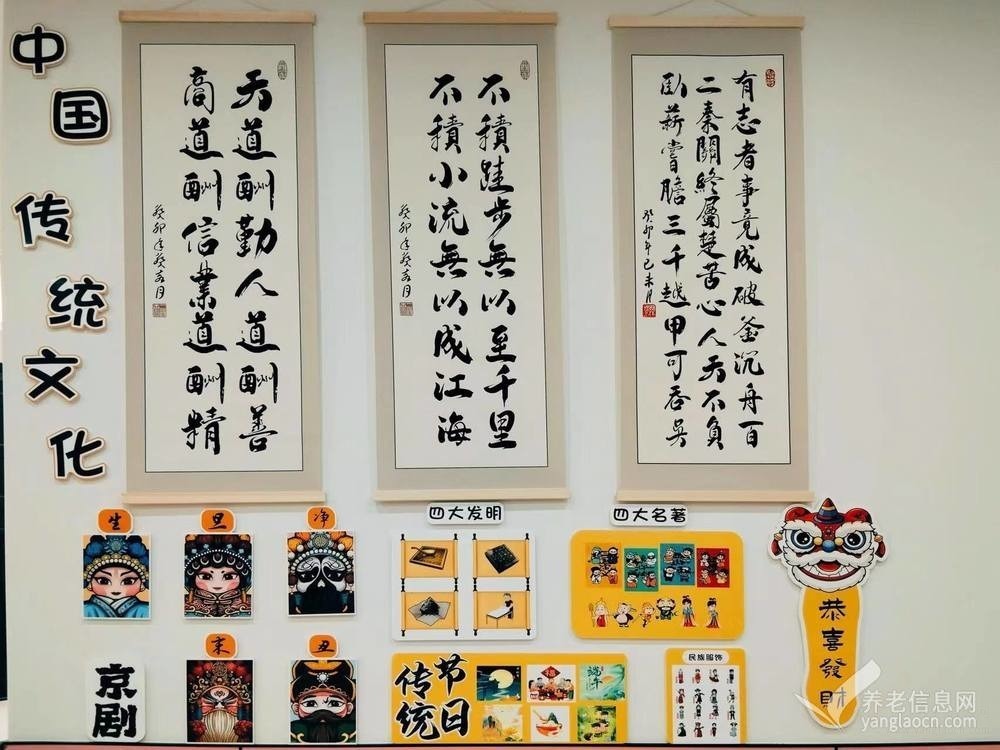 中国传统文化
天道酬勤人道酬善
商道酬信業道酬精
癸卯年癸亥月
不積跬步無以至千里
不積小流無以成江海
癸卯年癸亥月
有志者事竟成破釜沉舟百
二秦關終屬楚苦心人天不負
卧薪嘗膽三千越甲可吞吳
癸卯年己未月
生
旦
净
末
丑
京剧
四大发明
四大名著
传统
节日
端午
民族服饰
恭喜發財
养老信息网
yanglaocn.com